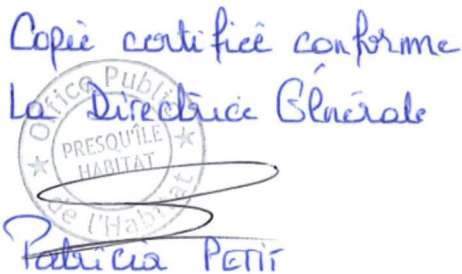 Copie certifiée conforme
La Directrice Générale
Office Public de l'Habitat
PRESQU'ÎLE
HABITAT
Patricia PETIT